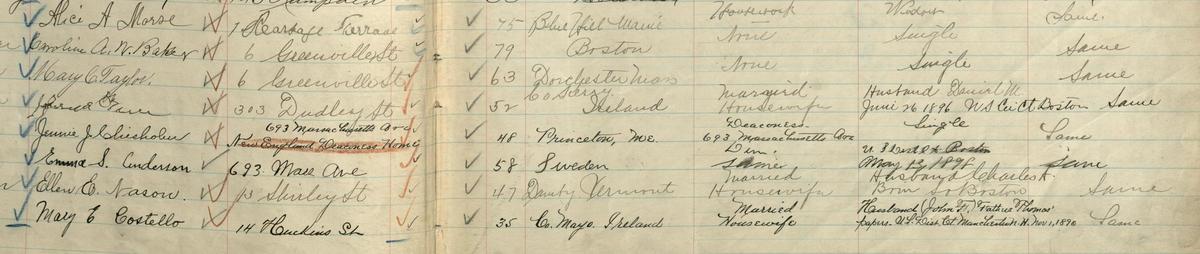 Alice A Morse 7 Terrace 75 Blue Hill Maine Housework Widow Same.
Caroline A. W. Baker 6 Greenville St 79 Boston None Single Same
Mary C Taylor 6 Greenville St 63 Dorchester Mass None Single Same
303 Dudley St 52 Co Kerry Ireland Married Housewife Husband Daniel M June 26 1896 U S Cir Ct Boston Same
Jennie J. Chisholm 693 Massachusetts Ave New England Deaconess Home 48 Princeton, Me. Deaconess 693 Massachusetts Ave Single Same
Emma S. Anderson 693 Mass Ave 58 Sweden Same U. S. Boston May 1896 Same
Ellen E. Nason. 13 Shirley St 47 Vermont Married Housewife Husband Charles H. Born So Boston Same
Mary E Costello 14 Huckins St 35 Co. Mayo, Ireland Married Housewife Husband John F. Father Thomas' papers. U.S. Dist. Ct. Manchester N.H. Nov 1, 1890 Same